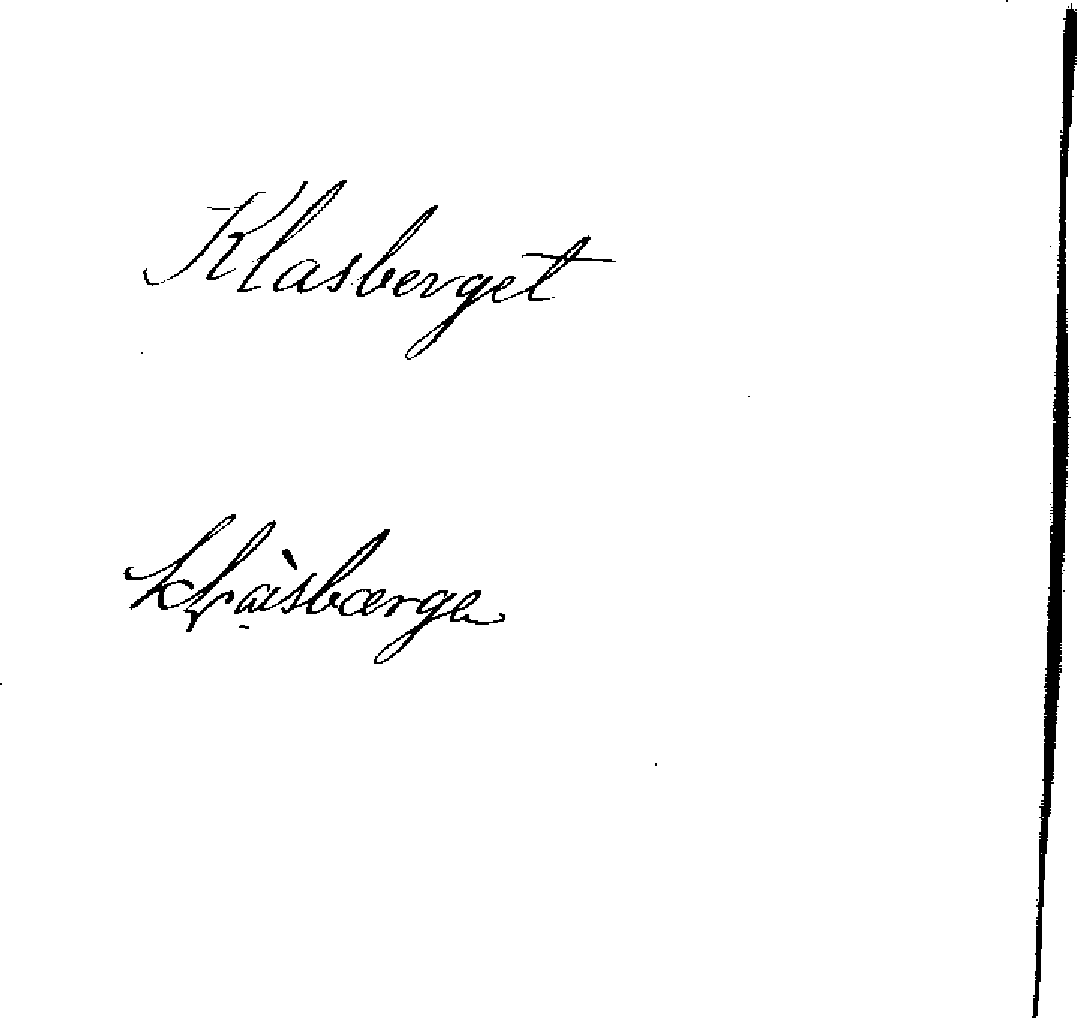 Klasberget
kḷàsbærgə